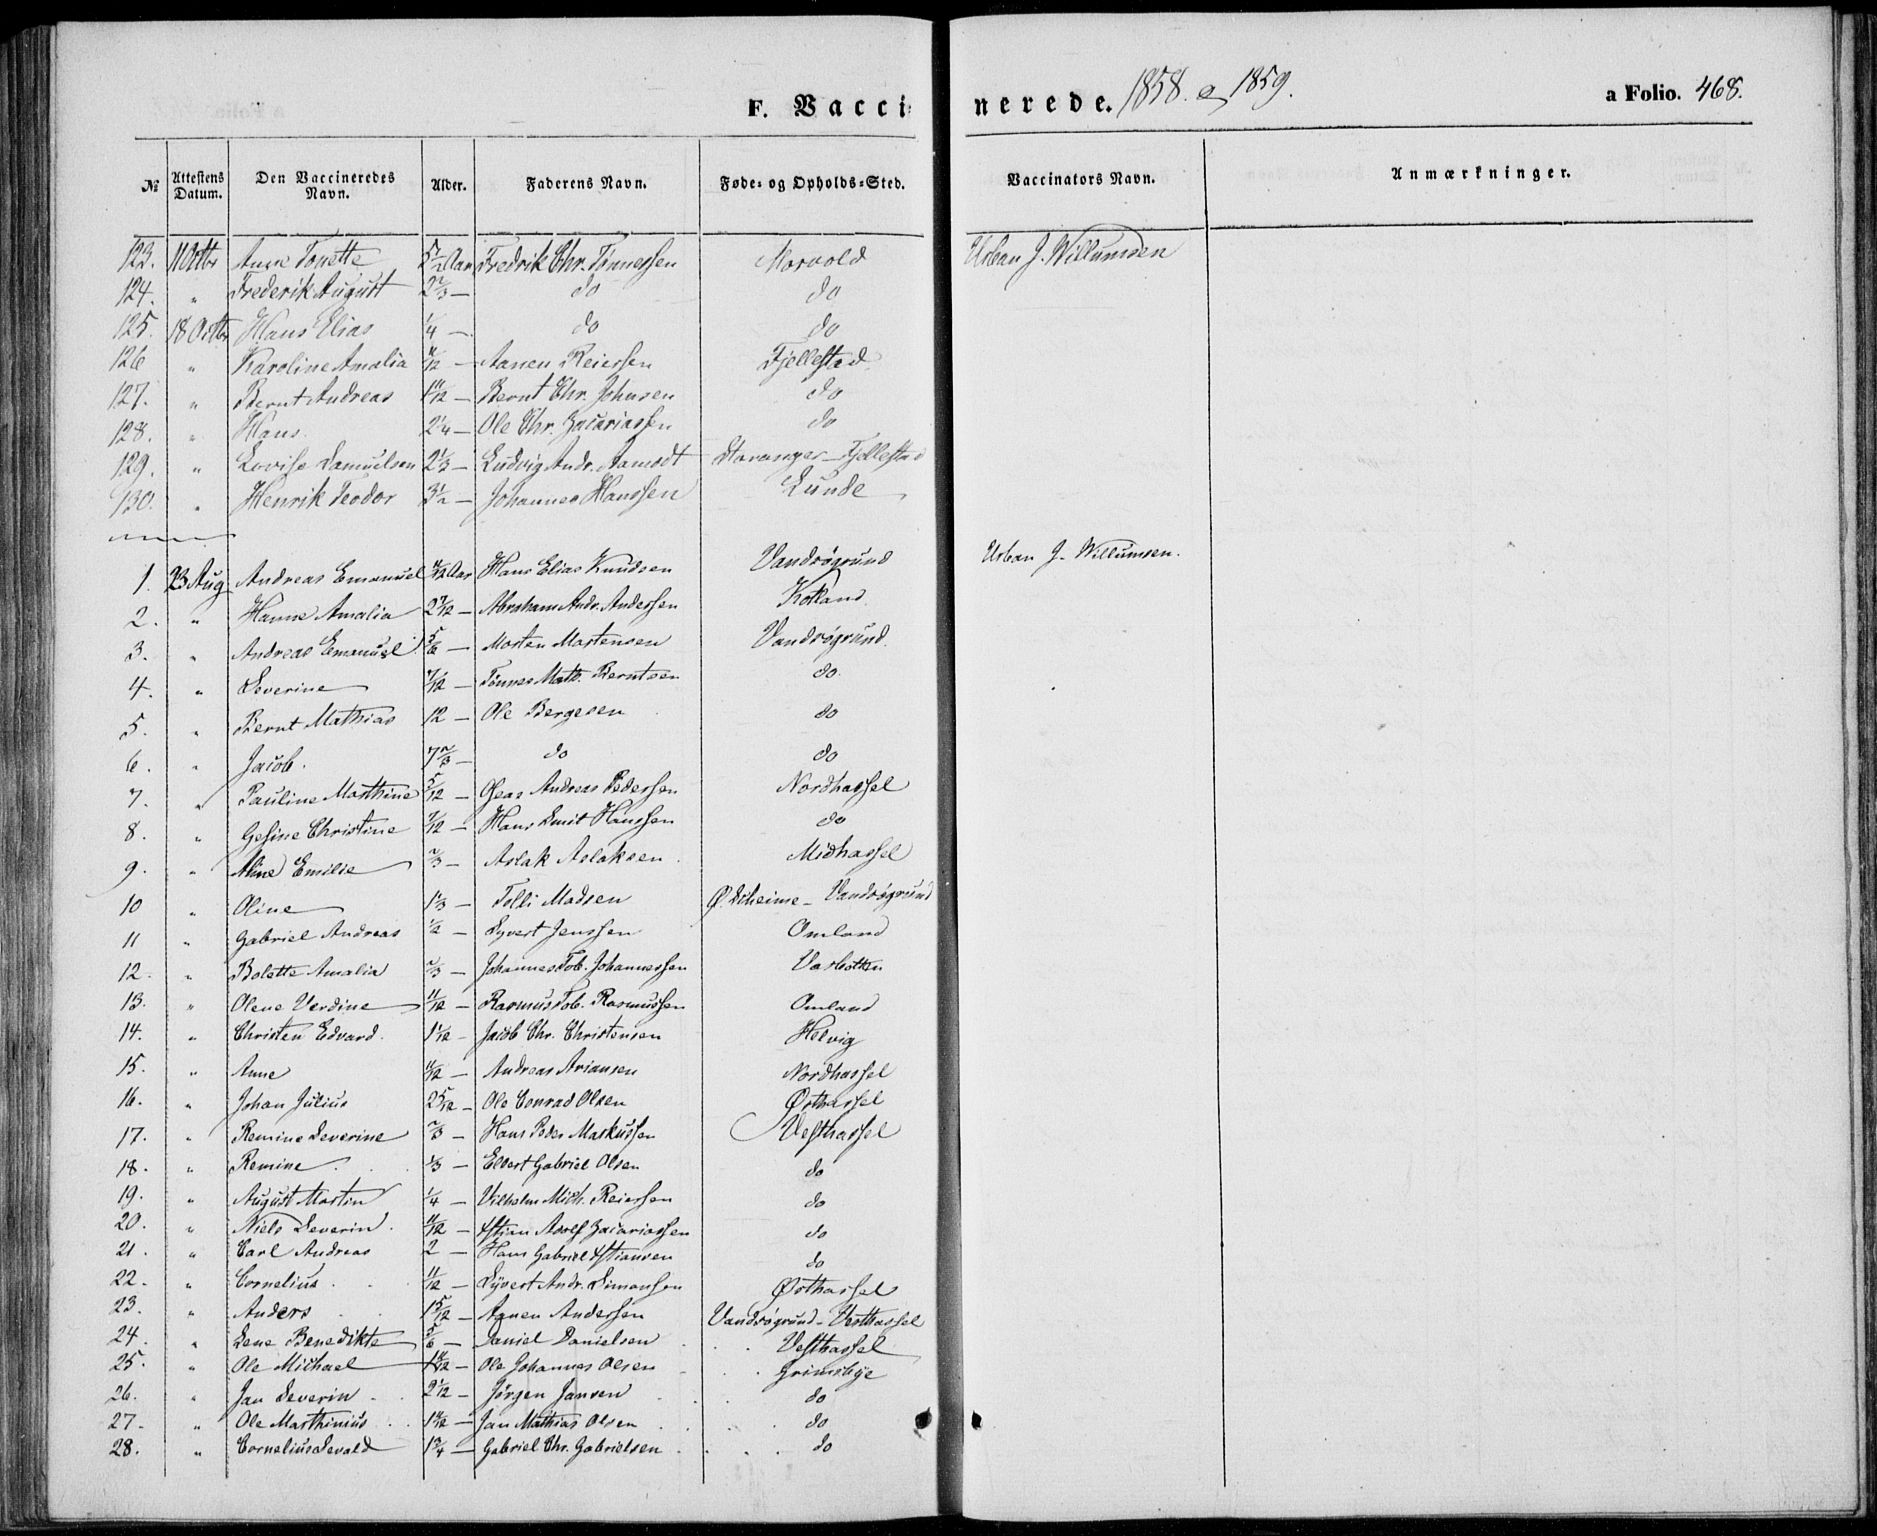 F. Vaccinerede. 1858. og 1859.
a Folio. 468.
№ Attestens Datum. Den Vaccineredes Navn. Alder. Faderens Navn. Føde- og Opholds-Sted. Vaccinators Navn. Anmærkninger.
123. 11 Octbr Anne Tonette 5 1/2 Aar Fredrik Chr. Tønnessen Norvold Urban J. Willumsen
124. " Frederik August 2 2/3 — do do
125. 18 Octbr Hans Elias 1/4 — do do
126 " Karoline Amalia 11/12 — Aanen Reiersen Fjellestad
127. " Bernt Andreas 1 11/12 — Bernt Chr. Johnsen do
128. " Hans. 2 1/4 — Ole Chr. Zacariassen do
129. " Lovise Samuelsen 2 1/3 — Ludvig Andr. Aamodt Stavanger - Fjellestad
130. " Henrik Teodor 3 1/2 — Johannes Hanssen Lunde
1. 23 Aug Andreas Emanuel 11/12 Aar Hans Elias Knudsen Vandrøgrund Urban J. Willumsen.
2. " Hanne Amalia 2 7/12 — Abraham Andr. Anderssen Kotland
3. " Andreas Emanuel 5/6 — Morten Mortensen Vandrøgrund.
4. " Severine 7/12 — Tønnes Math. Berntsen do
5. " Bernt Mathias 12 — Ole Bergesen do
6. " Jacob. 7 2/3 — do do
7. " Pauline Marthine 5/12 — Andreas Pederssen Nordhassel
8. " Gesine Christine 7/12 — Hans Smit Hanssen do
9. " Aline Emilie 2/3 — Aslak Aslaksen Midhassel
10 " Oline 1 2/3 — Tolli Madsen Ø. Skeime - Vandrøgrund
11 " Gabriel Andreas 1/2 — Syvert Jenssen Omland
12. " Bolette Amalia 2/3 — Johannes Tob. Johannessen Vatbotten
13. " Olene Verdine 11/12 — Rasmus Tob. Rasmussen Omland
14. " Christen Edvard. 1 1/12 — Jacob Chr. Christensen Helvig
15. " Anne 11/12 — Andreas Ariansen Nordhassel
16. " Johan Julius 2 5/12 — Ole Conrad Olsen Østhassel
17. " Remine Severine 2/3 — Hans Peder Markussen Vesthassel
18. " Remine 1/3 — Elvert Gabriel Olsen do
19. " August Martin 1/4 — Vilhelm Mich. Reierssen do
20. " Niels Severin. 11/12 — Xstian Adolf Zacariassen do
21. " Carl Andreas 2 — Hans Gabriel Xstiansen do
22. " Cornelius. 11/12 — Syvert Andr. Simonsen Østhassel
23. " Anders 1 5/12 — Aanen Anderssen Vandrøgrund - Vesthassel
24. " Lene Benedikte 5/6 — Daniel Danielsen Vesthassel
25. " Ole Michael — Ole Johannes Olsen Grimsbye
26. " Jan Severin 2 1/12 — Jørgen Jansen do
27. " Ole Marthinius — Jan Mathias Olsen do
28. " Cornelius Sevald 1 3/4 — Gabriel Chr. Gabrielsen do